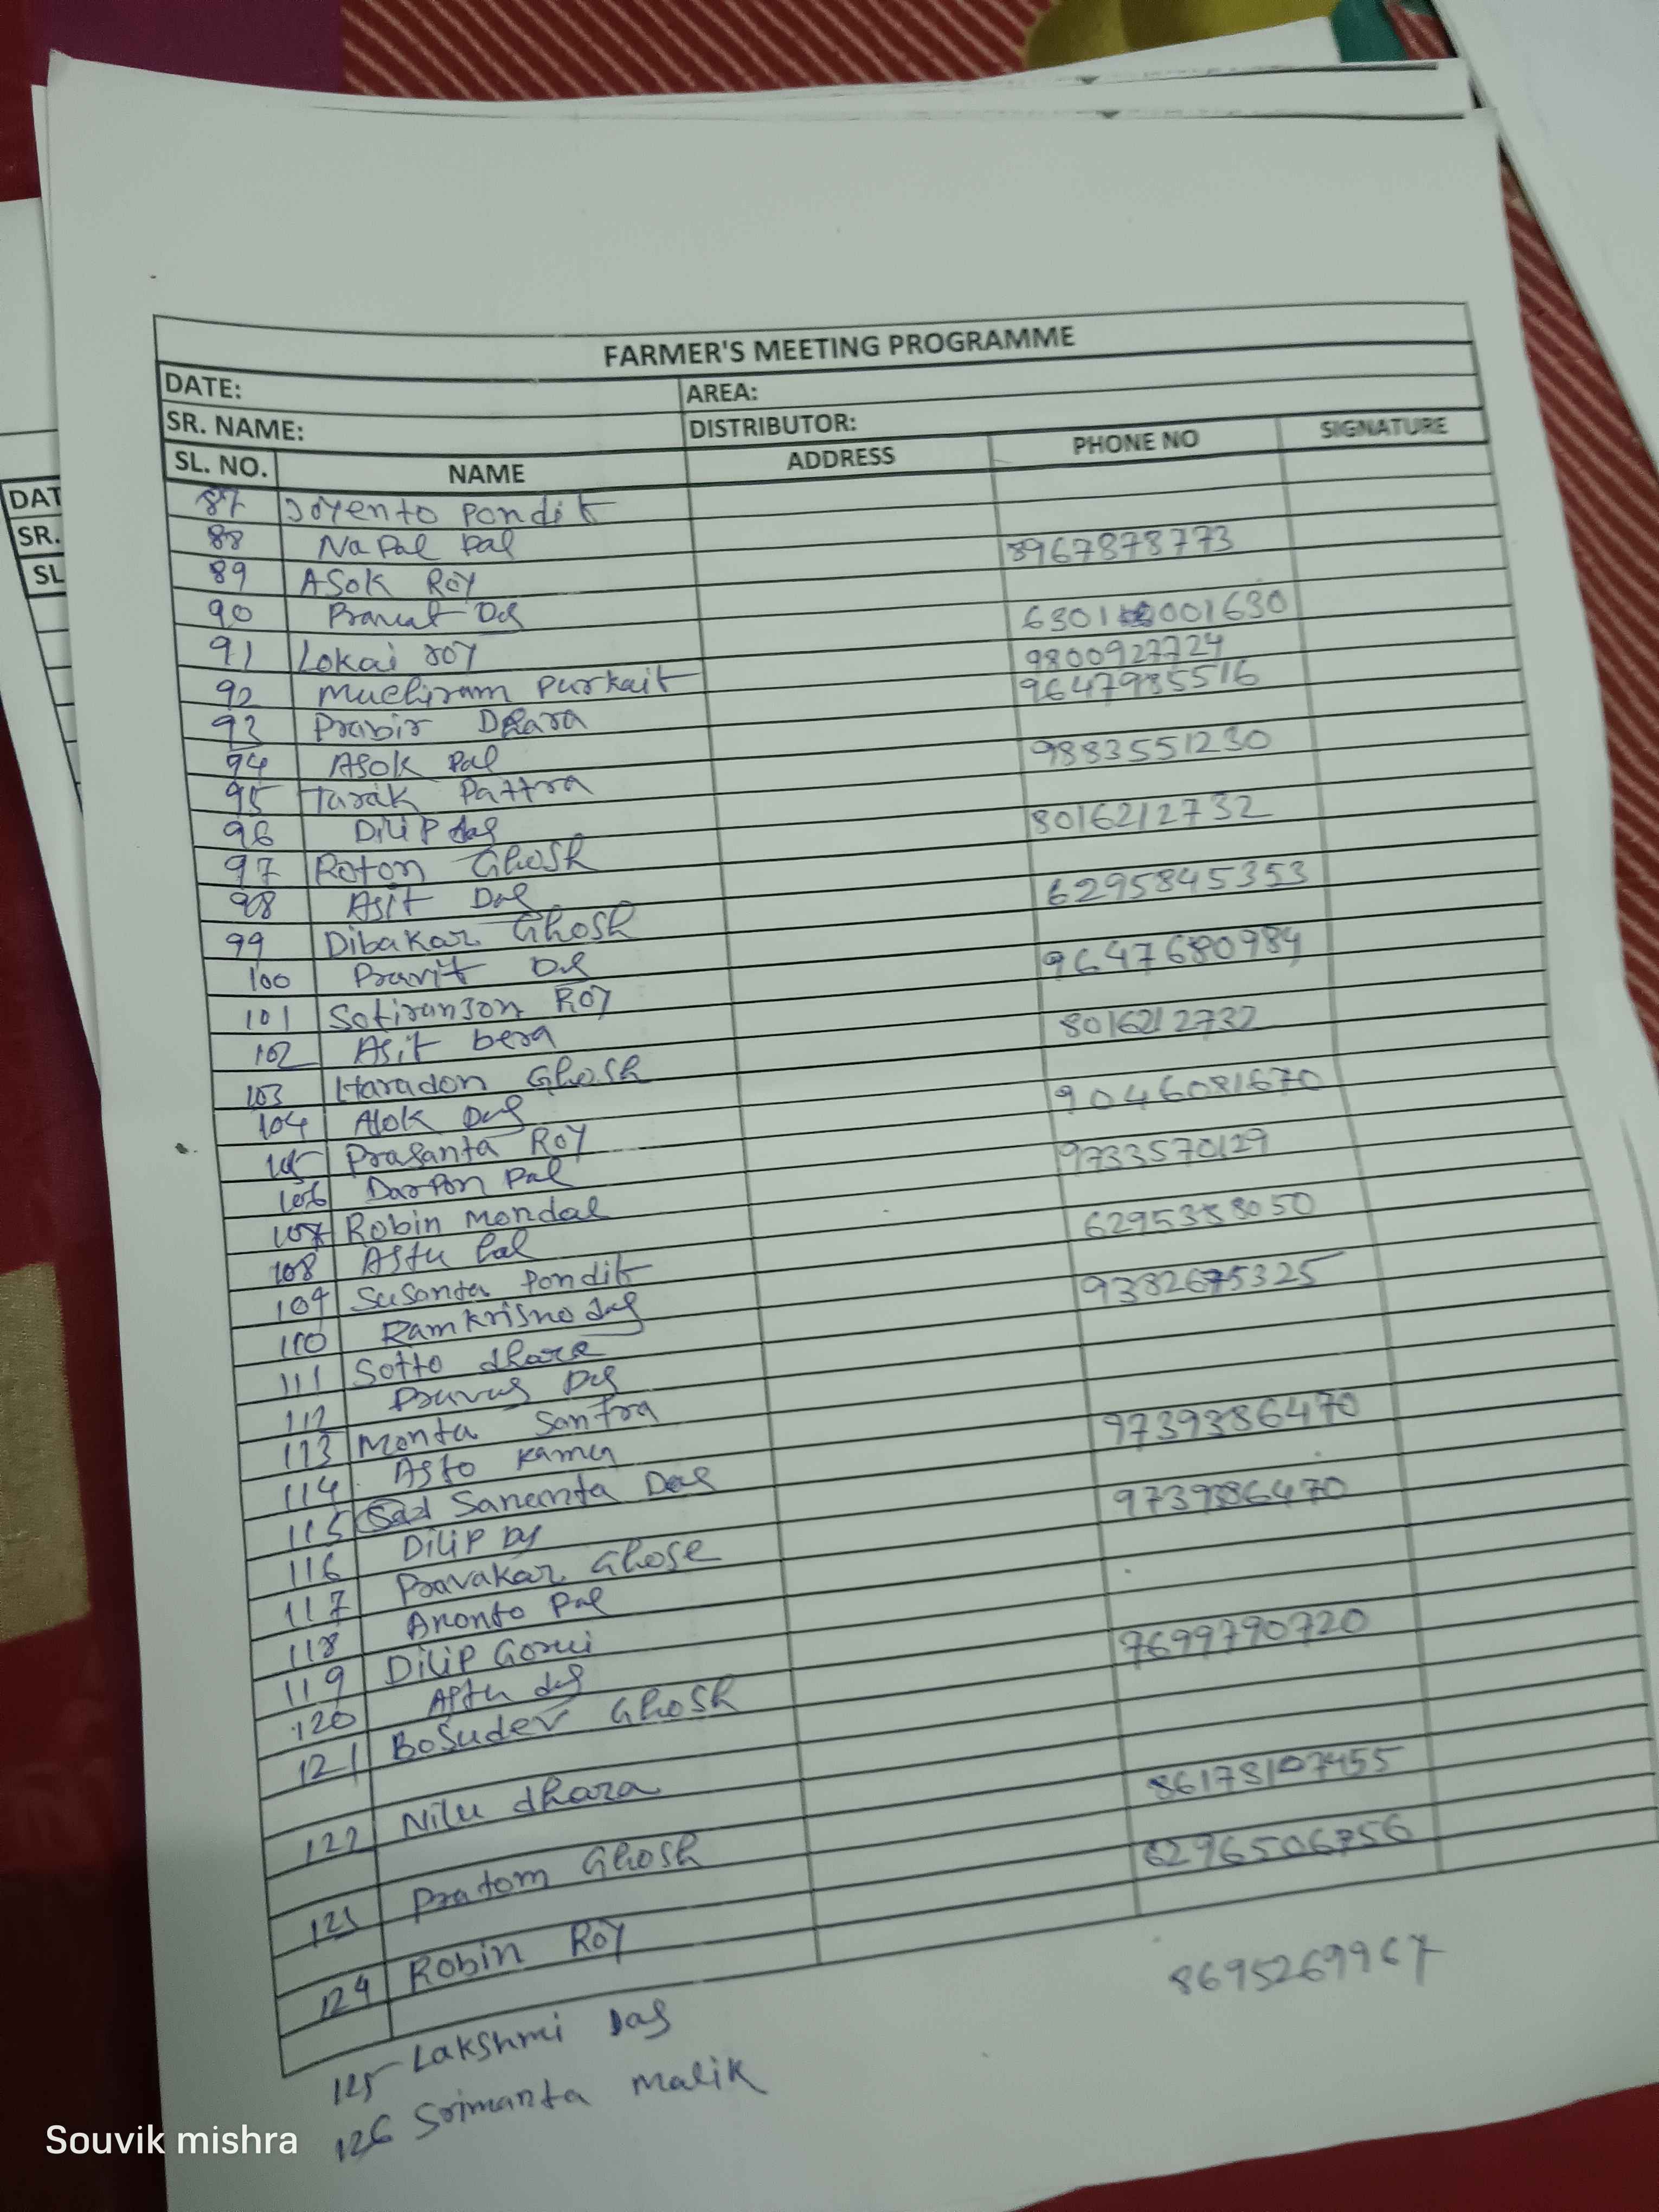 FARMER'S MEETING PROGRAMME
DATE: AREA:
SR. NAME: DISTRIBUTOR:
SL. NO. NAME ADDRESS PHONE NO SIGNATURE
87 Joyento pondit
88 Napal pal 8967878773
89 ASOK ROY
90 Das 6301 001630
91 Lokai roy 9800927724
92 Muchiram purkait 9647985516
93 Prabir Dhara
94 ASOK pal 9883551230
95 Tarak Pattra
96 DiliP das 8016212732
97 Roton GhoSh
98 Asit Das 6295845353
99 Dibakar GhoSh
100 Pravit Das 9647680984
101 Sotiranjon ROY
102 Asit bera 8016212732
103 Haradon GhoSh
104 Alok Das 9046081670
105 Prasanta ROY
106 DarPon pal 9733570129
107 Robin Mondal
108 Astu Pal 6295358050
109 Susonta Pondit
110 Ramkrisno das 9382675325
111 Sotto dhara
112 Pravas Das
113 Monta Santra
114 Asto 9739386470
115 Das
116 DiliP Das 9739386470
117 Pravakar Ghose
118 Anonto Pal
119 DiliP Gorui
120 Astu das 7699790720
121 BoSudev GhoSh
122 Nilu dhara 86178107455
123 Pratom GhoSh 6296506756
124 Robin ROY
125 Lakshmi Das 8695269967
126 Srimanta Malik
DAT
SR.
SL
Souvik mishra